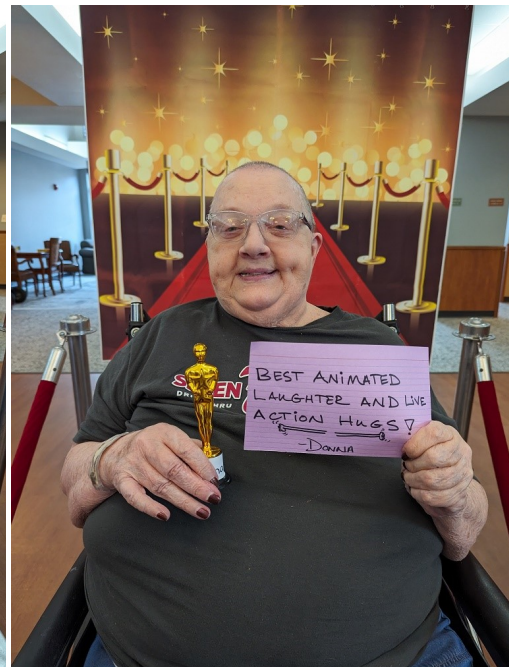 BEST ANIMATED
LAUGHTER AND LIVE
ACTION HUGS!
-DONNA